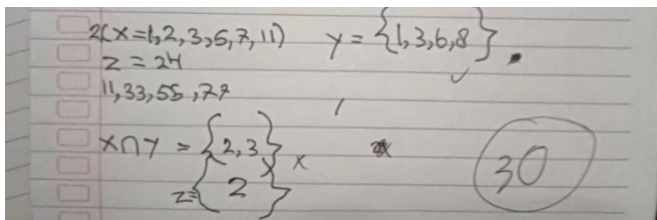 2(x=1,2,3,5,7,11) y = {1,3,6,8}.
z = 24
11,33,55,77
x∩y = {2,3} x
z={2}
30